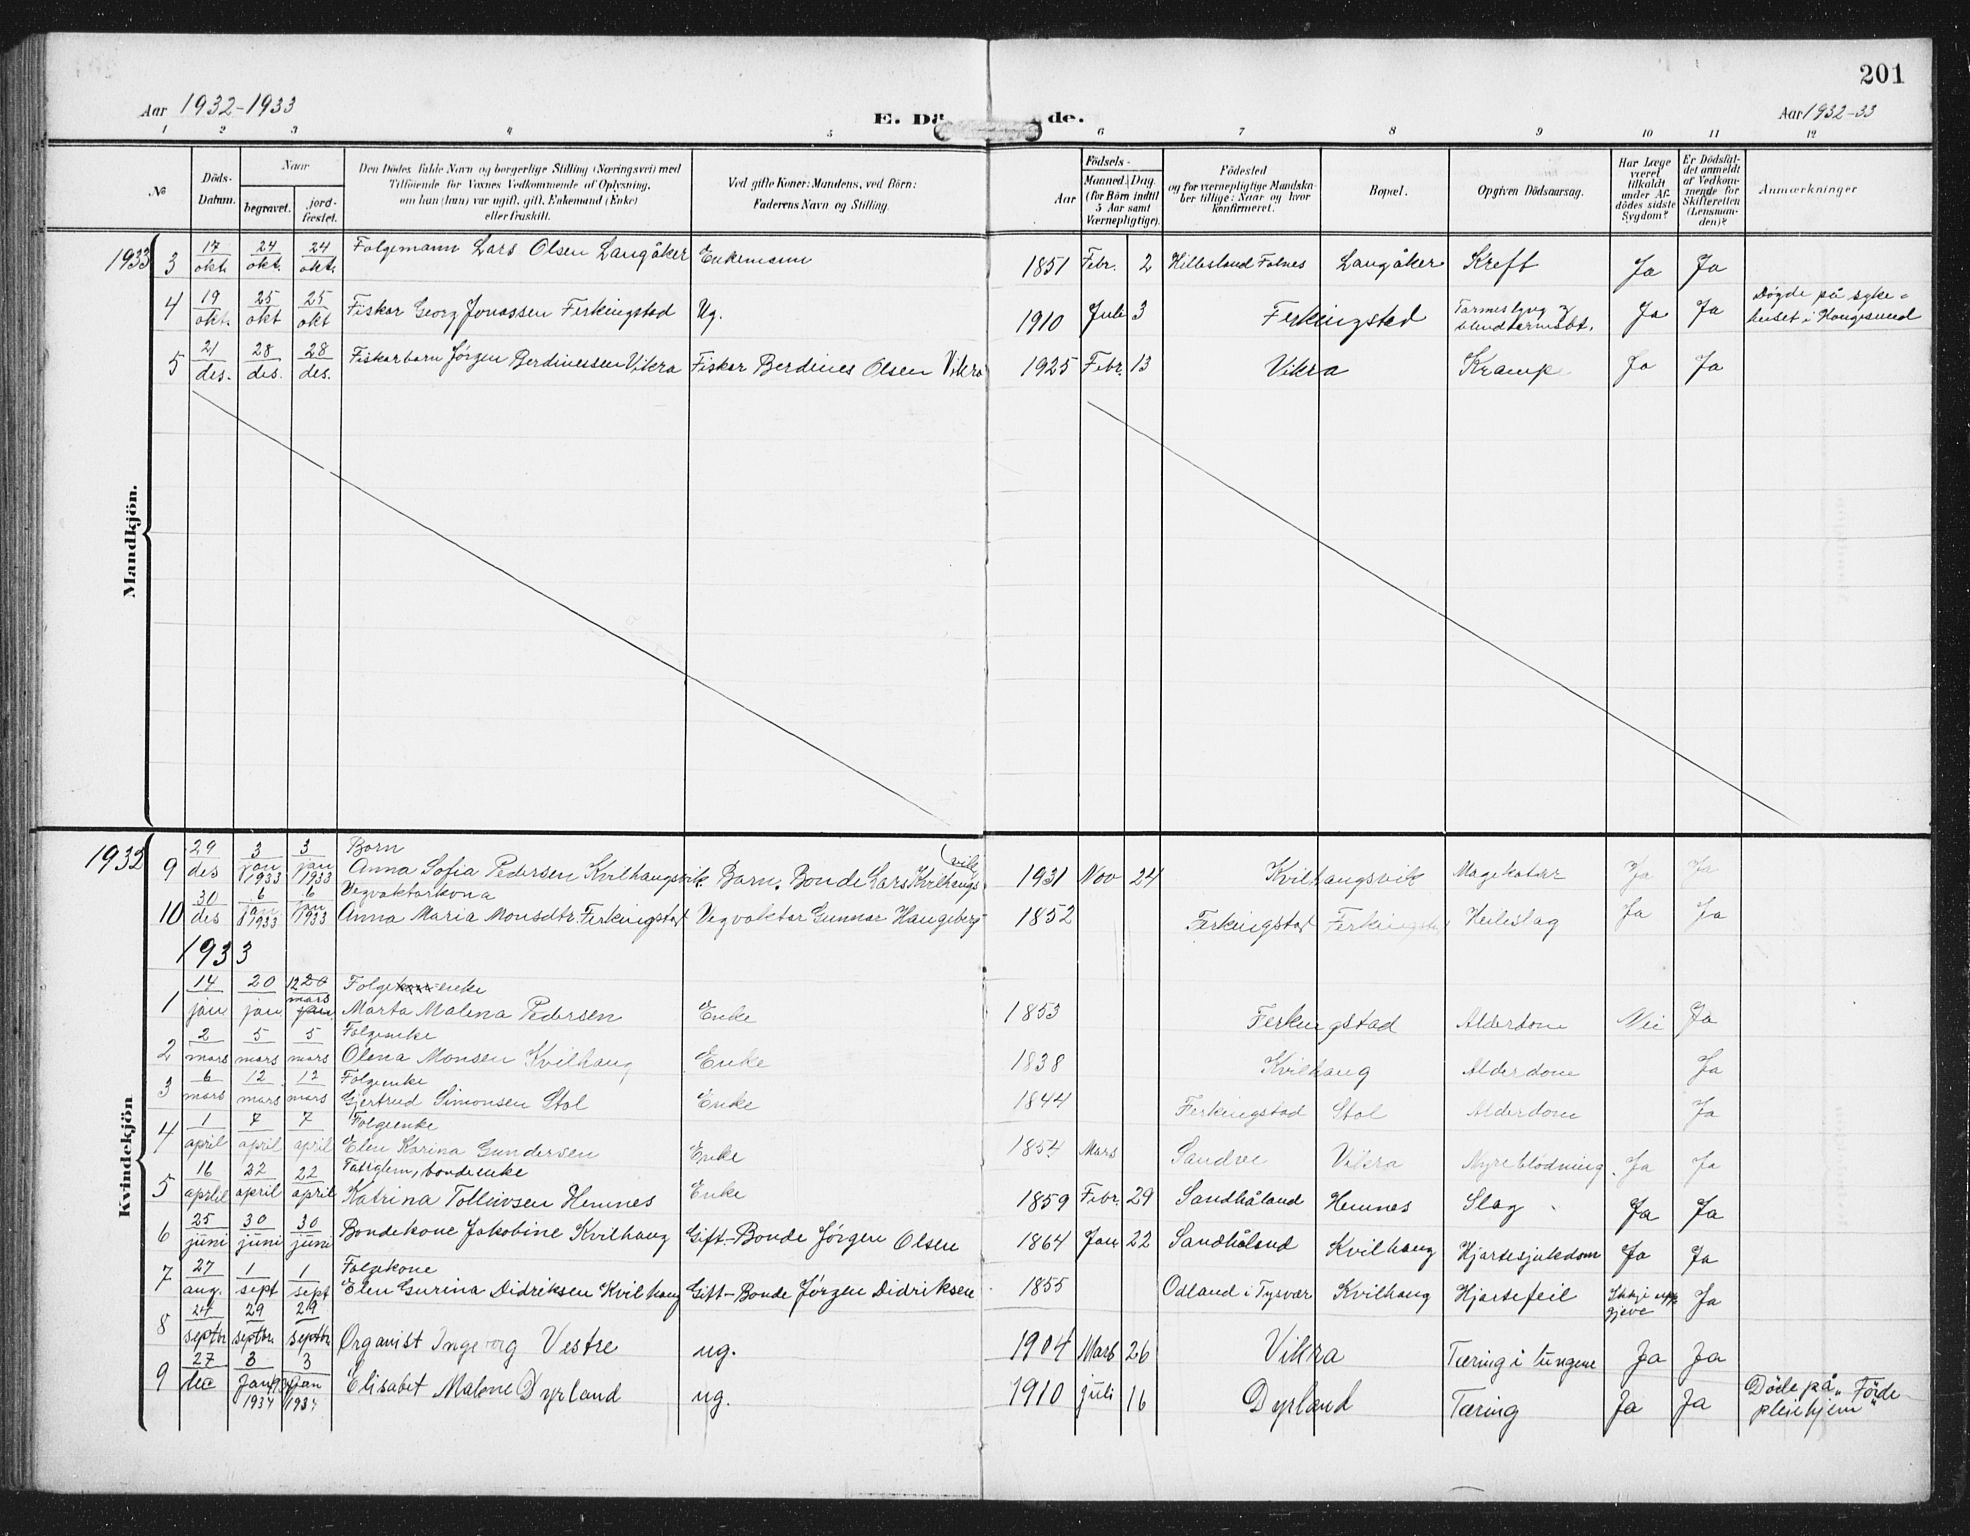 201
Aar 1932-1933
E. Dö de.
Aar 1932-33
1 2 3 4 5 6 7 8 9 10 11 12
No
Döds-Datum.
Naar
begravet.
jord-fæstet.
Den Dödes fulde Navn og borgerlige Stilling (Næringsvei) med
Tilföiende for Voxnes Vedkommende af Oplysning,
om han (hun) var ugift, gift, Enkemand (Enke)
eller fraskilt.
Ved gifte Koner: Mandens, ved Börn:
Faderens Navn og Stilling.
Födsels-
Aar
Maaned. Dag.
(for Börn indtil
5 Aar samt
Værnepligtige).
Födested
og for værnepligtige Mandska-
ber tillige: Naar og hvor
konfirmeret.
Bopæl.
Opgiven Dödsaarsag.
Har Læge
været
tilkaldt
under Af-
dödes sidste
Sygdom?
Er Dödsfal-
det anmeldt
af Vedkom-
mende for
Skifteretten
(Lensman-
den)?
Anmærkninger
Mandkjön.
1933 3 17/okt. 24/okt. 24/okt. Folgemann Lars Olsen Langåker Enkemann 1851 Febr. 2 Hillesland Falnes Langåker Kreft Ja Ja
4 19/okt. 25/okt 25/okt Fiskar Georg Jonassen Ferkingstad Ug. 1910 Juli 3 Ferkingstad Tarmslyng og blindtarmsbt. Ja Ja Døyde på syke-huset i Haugesund
5 21/des. 28/des. 28/des. Fiskarbarn Jörgen Berdinessen Vikra Fiskar Berdines Olsen Vikra 1925 Febr. 13 Vikra Krampe Ja Ja
Kvindekjön
1932 9 29/des 3/jan 1933 3/jan 1933 Born
Anna Sofia Pedersen Kvilhaugsvik. Barn. Bonde Lars Kvilhaugs(vik 1931 Nov 24 Kvilhaugsvik Magekatar Ja Ja
10 30/des 6/jan 1933 6/jan 1933 Vegvaktarkona
Anna Maria Monsdtr. Ferkingstad Vegvaktar Gunnar Haugeberg 1852 Ferkingstad Ferkingstad Heileslag Ja Ja
1933
1 14/jan 20/jan 12 20/mars jan. Folgekone enke
Marta Malena Pedersen Enke 1853 Ferkingstad Alderdom Nei Ja
2 2/mars 5/mars 5/mars Folgeenke
Olena Monsen Kvilhaug Enke 1838 Kvilhaug Alderdom Ja
3 6/mars 12/mars 12/mars Folgeenke
Gjertrud Simonsen Stol Enke 1844 Ferkingstad Stol Alderdom Ja
4 1/april 7/april 7/april Folgeenke
Elen Karina Gundersen Enke 1854 Mars Sandve Vikra Nyreblödning. Ja Ja
5 16/april 22/april 22/april Fatiglem, bondeenke
Katrina Tolleivsen Hemnes Enke 1859 Febr. 29 Sandhåland Hemnes Slag Ja Ja
6 25/juni 30/juni 30/juni Bondekone Jakobine Kvilhaug Gift-Bonde Jörgen Olsen 1864 Jan 22 Sandhåland Kvilhaug Hjartesjukdom Ja Ja
7 27/aug. 1/sept 1/sept Folgekone
Elen Gurina Didriksen Kvilhaug Gift-Bonde Jörgen Didriksen 1855 Odland i Tysvær Kvilhaug Hjartefeil Ikkje upp-gjeve Ja
8 24/septbr. 29/septbr. 29/septbr Organist Ingeborg Vestre ug. 1904 Mars 26 Vikra Tæring i lungene Ja Ja
9 27/dec 3/Jan 1934 3/Jan 1934 Elisabet Malene Dyrland ug. 1910 juli 16 Dyrland Tæring Ja Ja Döde på „Förde pleiehjem"